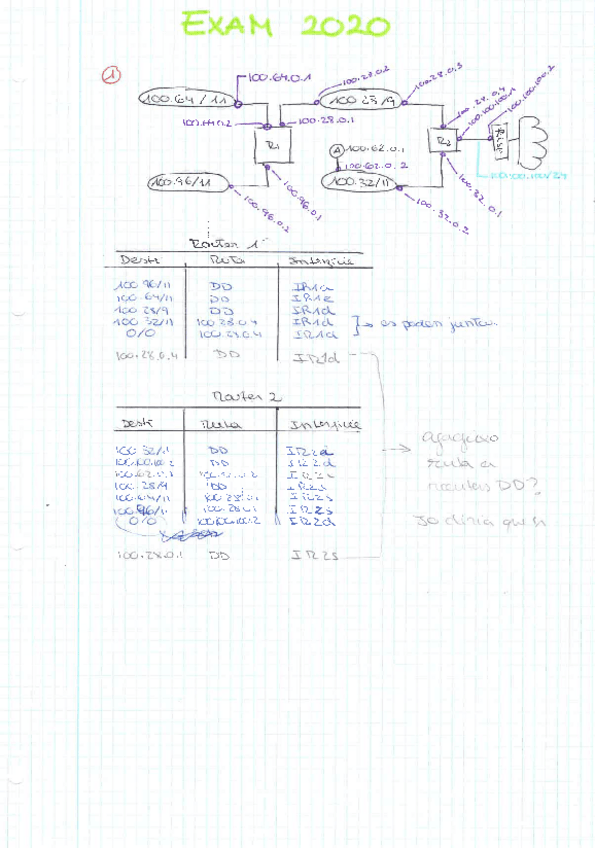 EXAM 2020
1
100.64.0.1
100.28.0.2
100.28.0.3
100.64/11
100.28/9
100.28.0.4
100.100.100.1
100.100.100.2
100.28.0.1
R1
A 100.62.0.1
R2
Risp
100.62.0.2
100.96/11
100.32/11
100.100.100/24
100.96.0.1
100.32.0.1
100.96.0.2
100.32.0.2
Router 1
Destí Ruta Interfície
100.96/11 DD
100.64/11 DD
100.28/9 DD IR1d
100.32/11 100.28.0.4 IR1d
0/0 100.28.0.4 IR1d
es poden juntar
100.28.0.4 DD IR1d
Router 2
Destí Ruta Interfície
100.32/11 DD IR2d
100.100.100.2 DD IR2d
100.28/9 DD IR2s
100.64/11 100.28.0.1 IR2s
100.96/11 100.28.0.1 IR2s
0/0 100.100.100.2 IR2d
100.28.0.1 DD IR2s
ruta a
DD?
Jo diria que sí